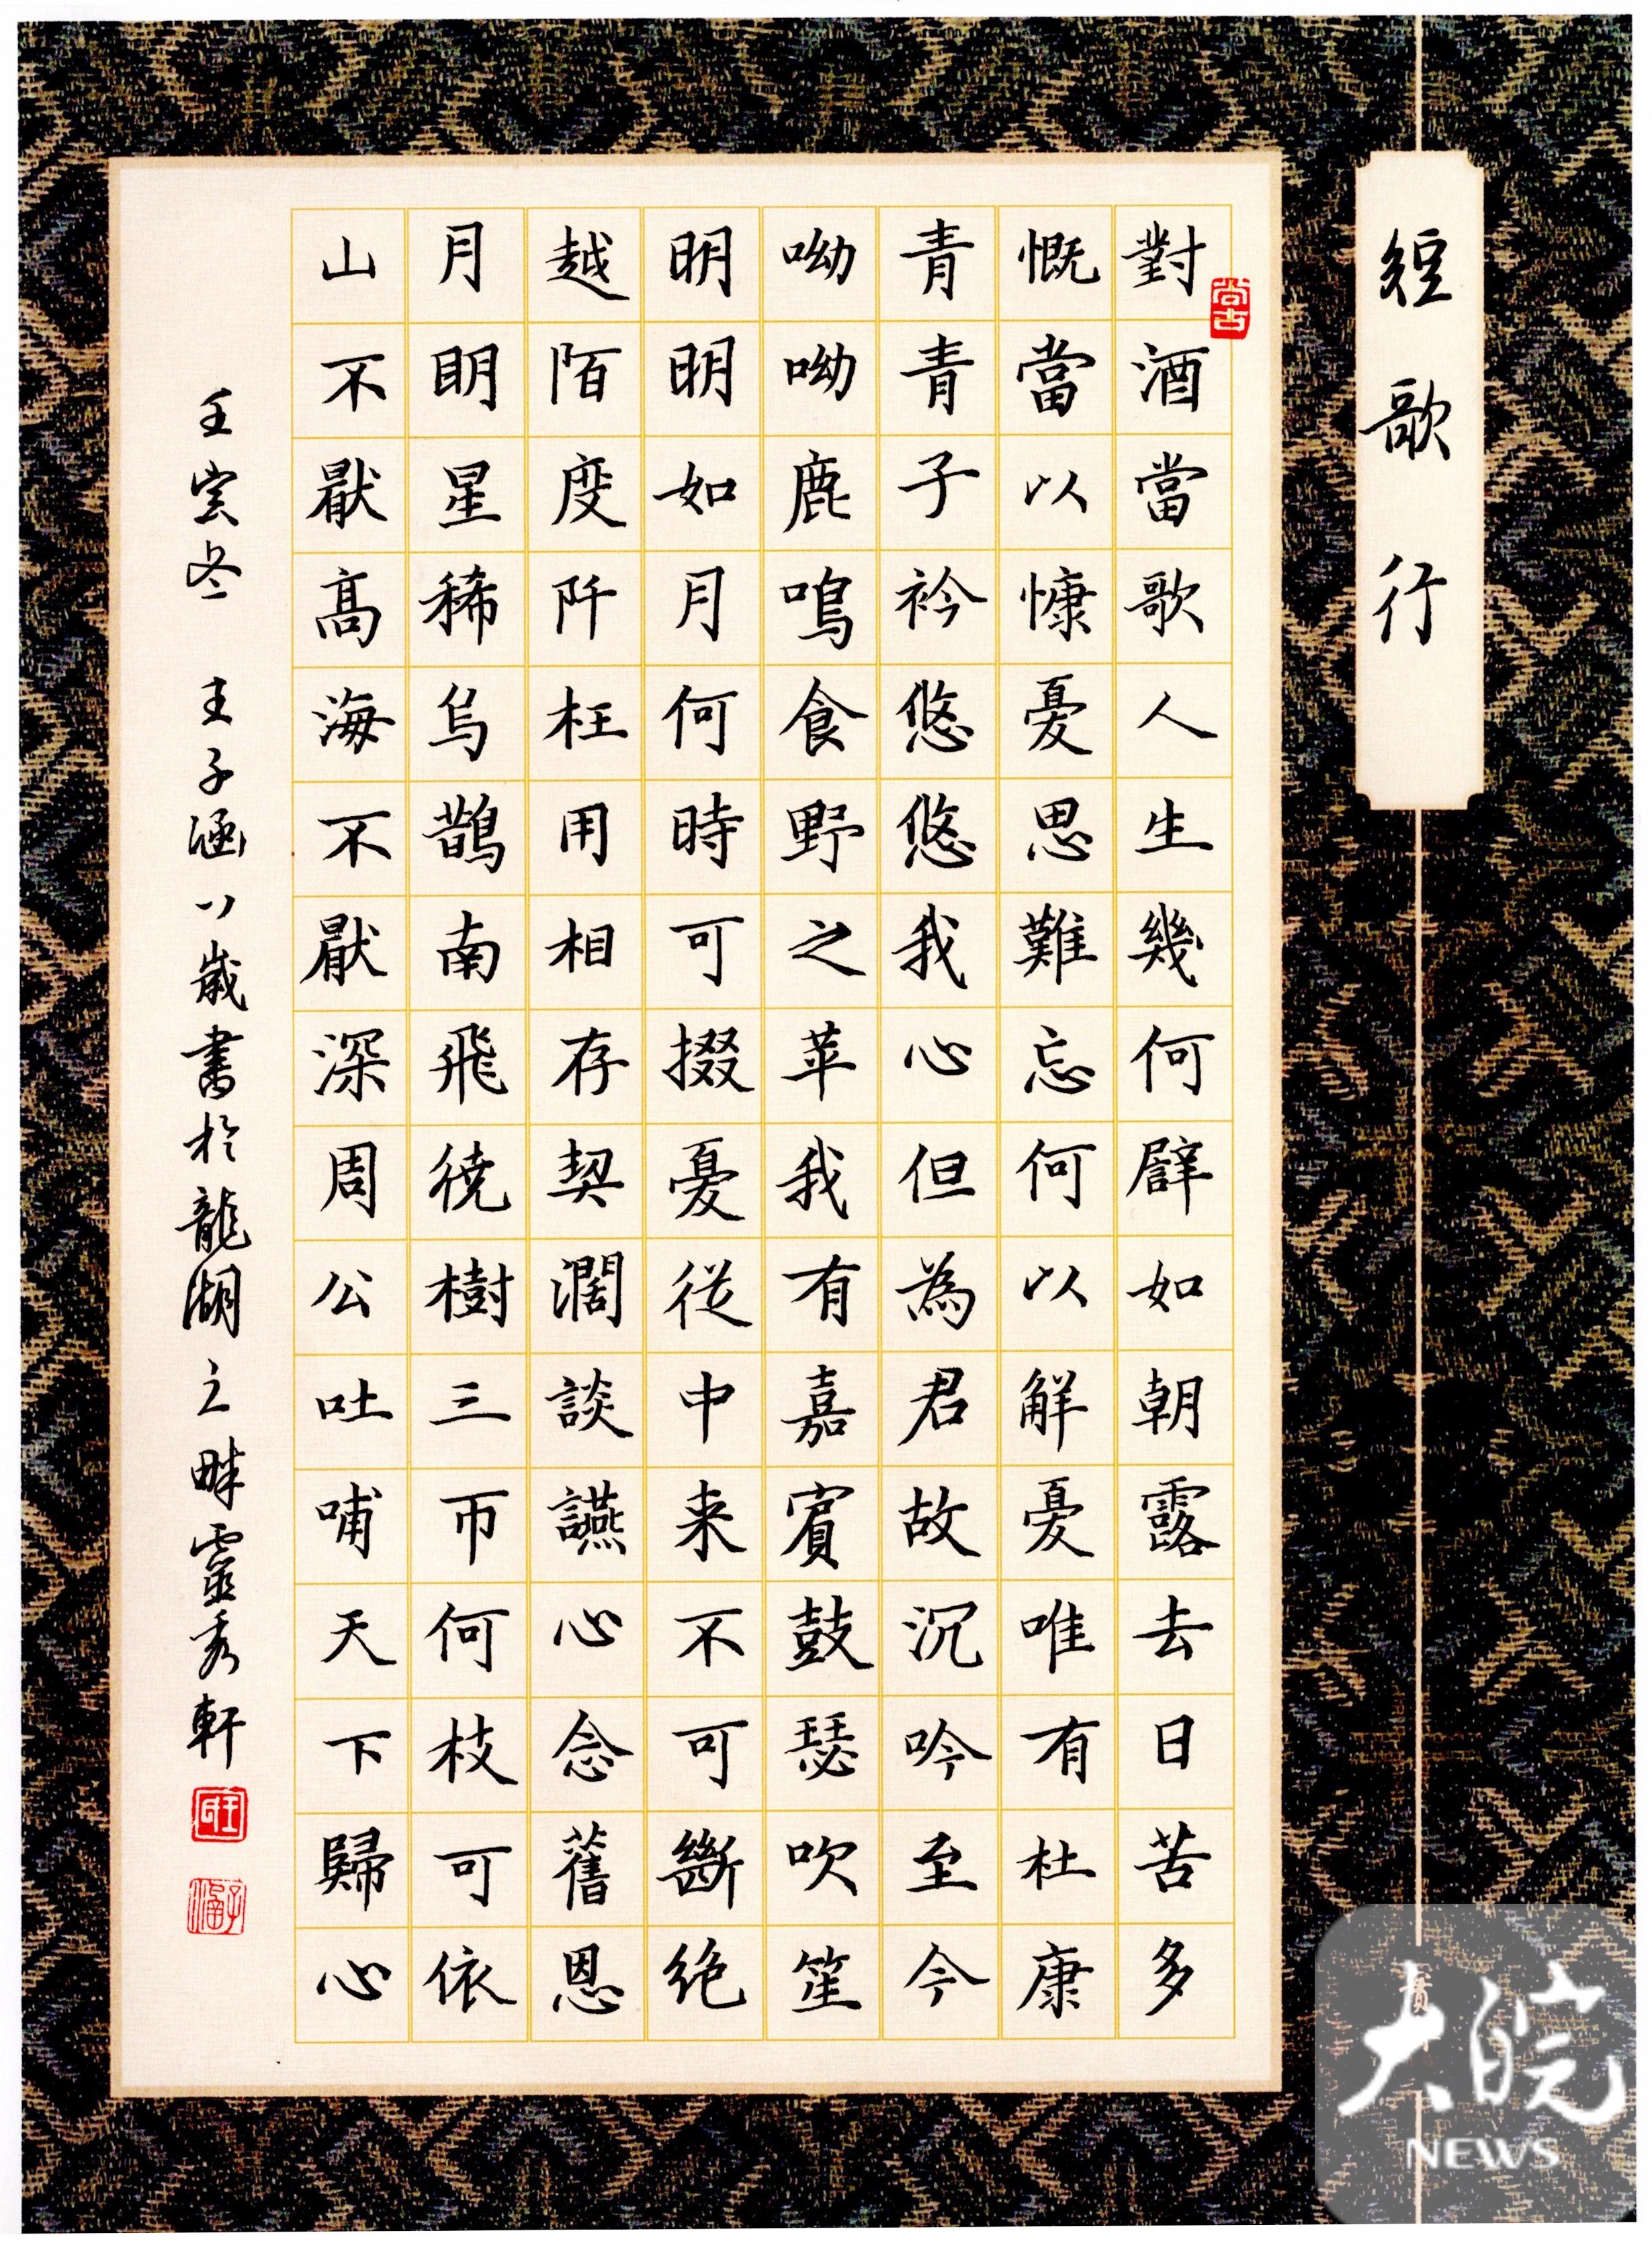 短歌行
尚古
對酒當歌人生幾何譬如朝露去日苦多
慨當以慷憂思難忘何以解憂唯有杜康
青青子衿悠悠我心但為君故沉吟至今
呦呦鹿鳴食野之苹我有嘉賓鼓瑟吹笙
明明如月何時可掇憂從中来不可斷絶
越陌度阡枉用相存契濶談讌心念舊恩
月明星稀烏鵲南飛繞樹三帀何枝可依
山不厭高海不厭深周公吐哺天下歸心
壬寅冬 王子涵八歲書於龍湖之畔靈秀軒
大皖
NEWS